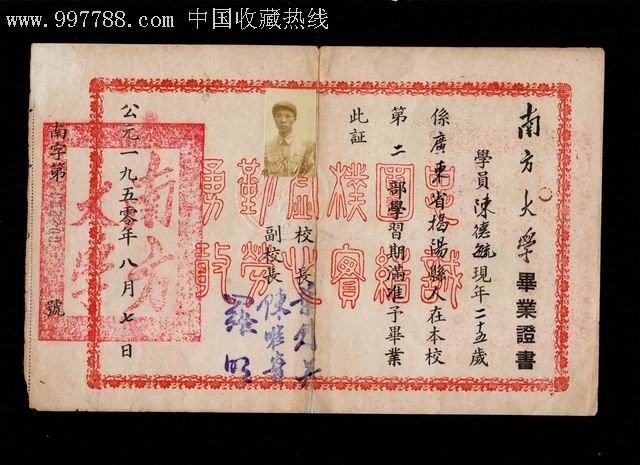 www.997788.com 中国收藏热线
南方大學畢業證書
學員陳德毓現年二十五歲
係廣東省揭陽縣人在本校
第二部學習期滿准予畢業
此証
忠誠團結樸實虛心勤勞勇敢
校長
副校長 陳唯實
羅明
公元一九五零年八月七日
南字第 號
南方大學